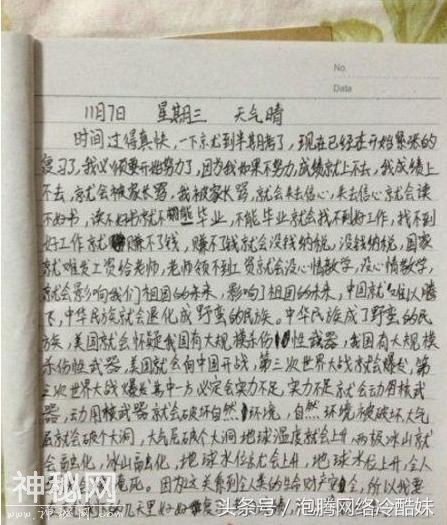 No.
Data
11月7日 星期三 天气晴
时间过得真快,一下就到半期考了,现在已经在开始紧张的
复习了,我必须要开始努力了,因为我如果不努力,成绩就上不去,我成绩上
不去,就会被家长骂,我被家长骂,就会失去信心,失去信心就会读
不好书,读不好书就不能毕业,不能毕业就会找不到好工作,找不到
好工作就赚不了钱,赚不了钱就会没钱纳税,没钱纳税,国家
就难发工资给老师,老师领不到工资就会没心情教学,没心情教学,
就会影响我们祖国的未来,影响了祖国的未来,中国就难以腾
飞,中华民族就会退化成野蛮的民族。中华民族成了野蛮的民
族,美国就会怀疑我国有大规模杀伤性武器,我国有大规模
杀伤性武器,美国就会向中国开战,第三次世界大战就会爆发,第
三次世界大战爆发其中一方必定会实力不足,实力不足就会动用核武
器,动用核武器就会破坏自然环境,自然环境被破坏大气
层就会破个大洞,大气层破个大洞地球温度就会上升,两极冰山就
会融化,冰山融化,地球水位就会上升,地球水位上升,全人
淹死。因为这关系到全人类的生命财产安全,所以我要
的几天里好好复习
神秘网
头条号 / 泡腾网络冷酷妹